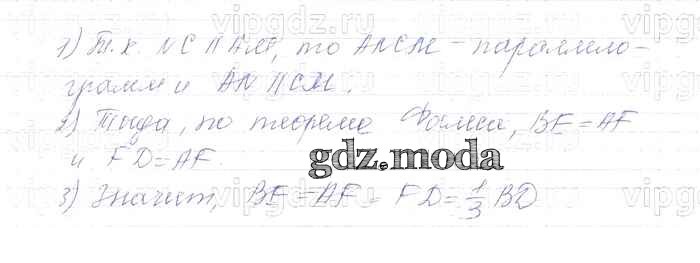 1) Т.к. NC ∥ AM, то ANCM - параллело-
грамм и AN ∥ CM.
2) Тогда, по теореме Фалеса, BE = AF
и FD = AF.
gdz.moda
3) Значит, BE = AF = FD = 1/3 BD